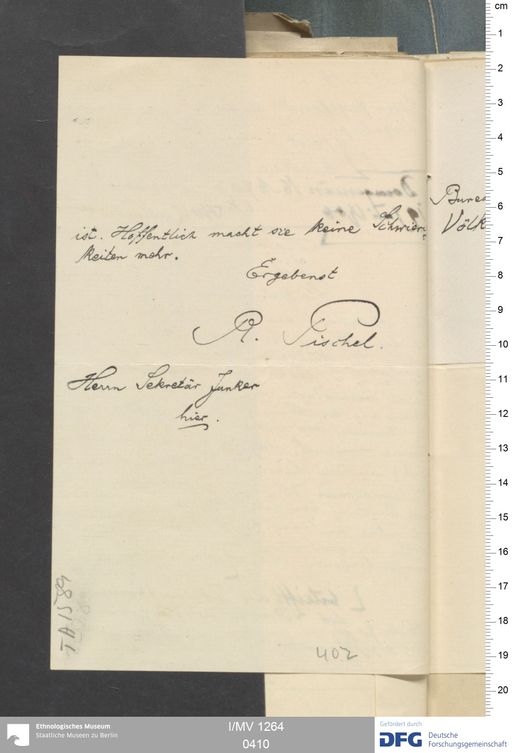 ist. Hoffentlich macht sie keine Schwierig-
keiten mehr.
Ergebenst
R. Pischel.
Herrn Sekretär Junker
hier.
Bureau
Völk
TA 1589
402
cm
1
2
3
4
5
6
7
8
9
10
11
12
13
14
15
16
17
18
19
20
Ethnologisches Museum
Staatliche Museen zu Berlin
I/MV 1264
0410
Gefördert durch
DFG Deutsche
Forschungsgemeinschaft